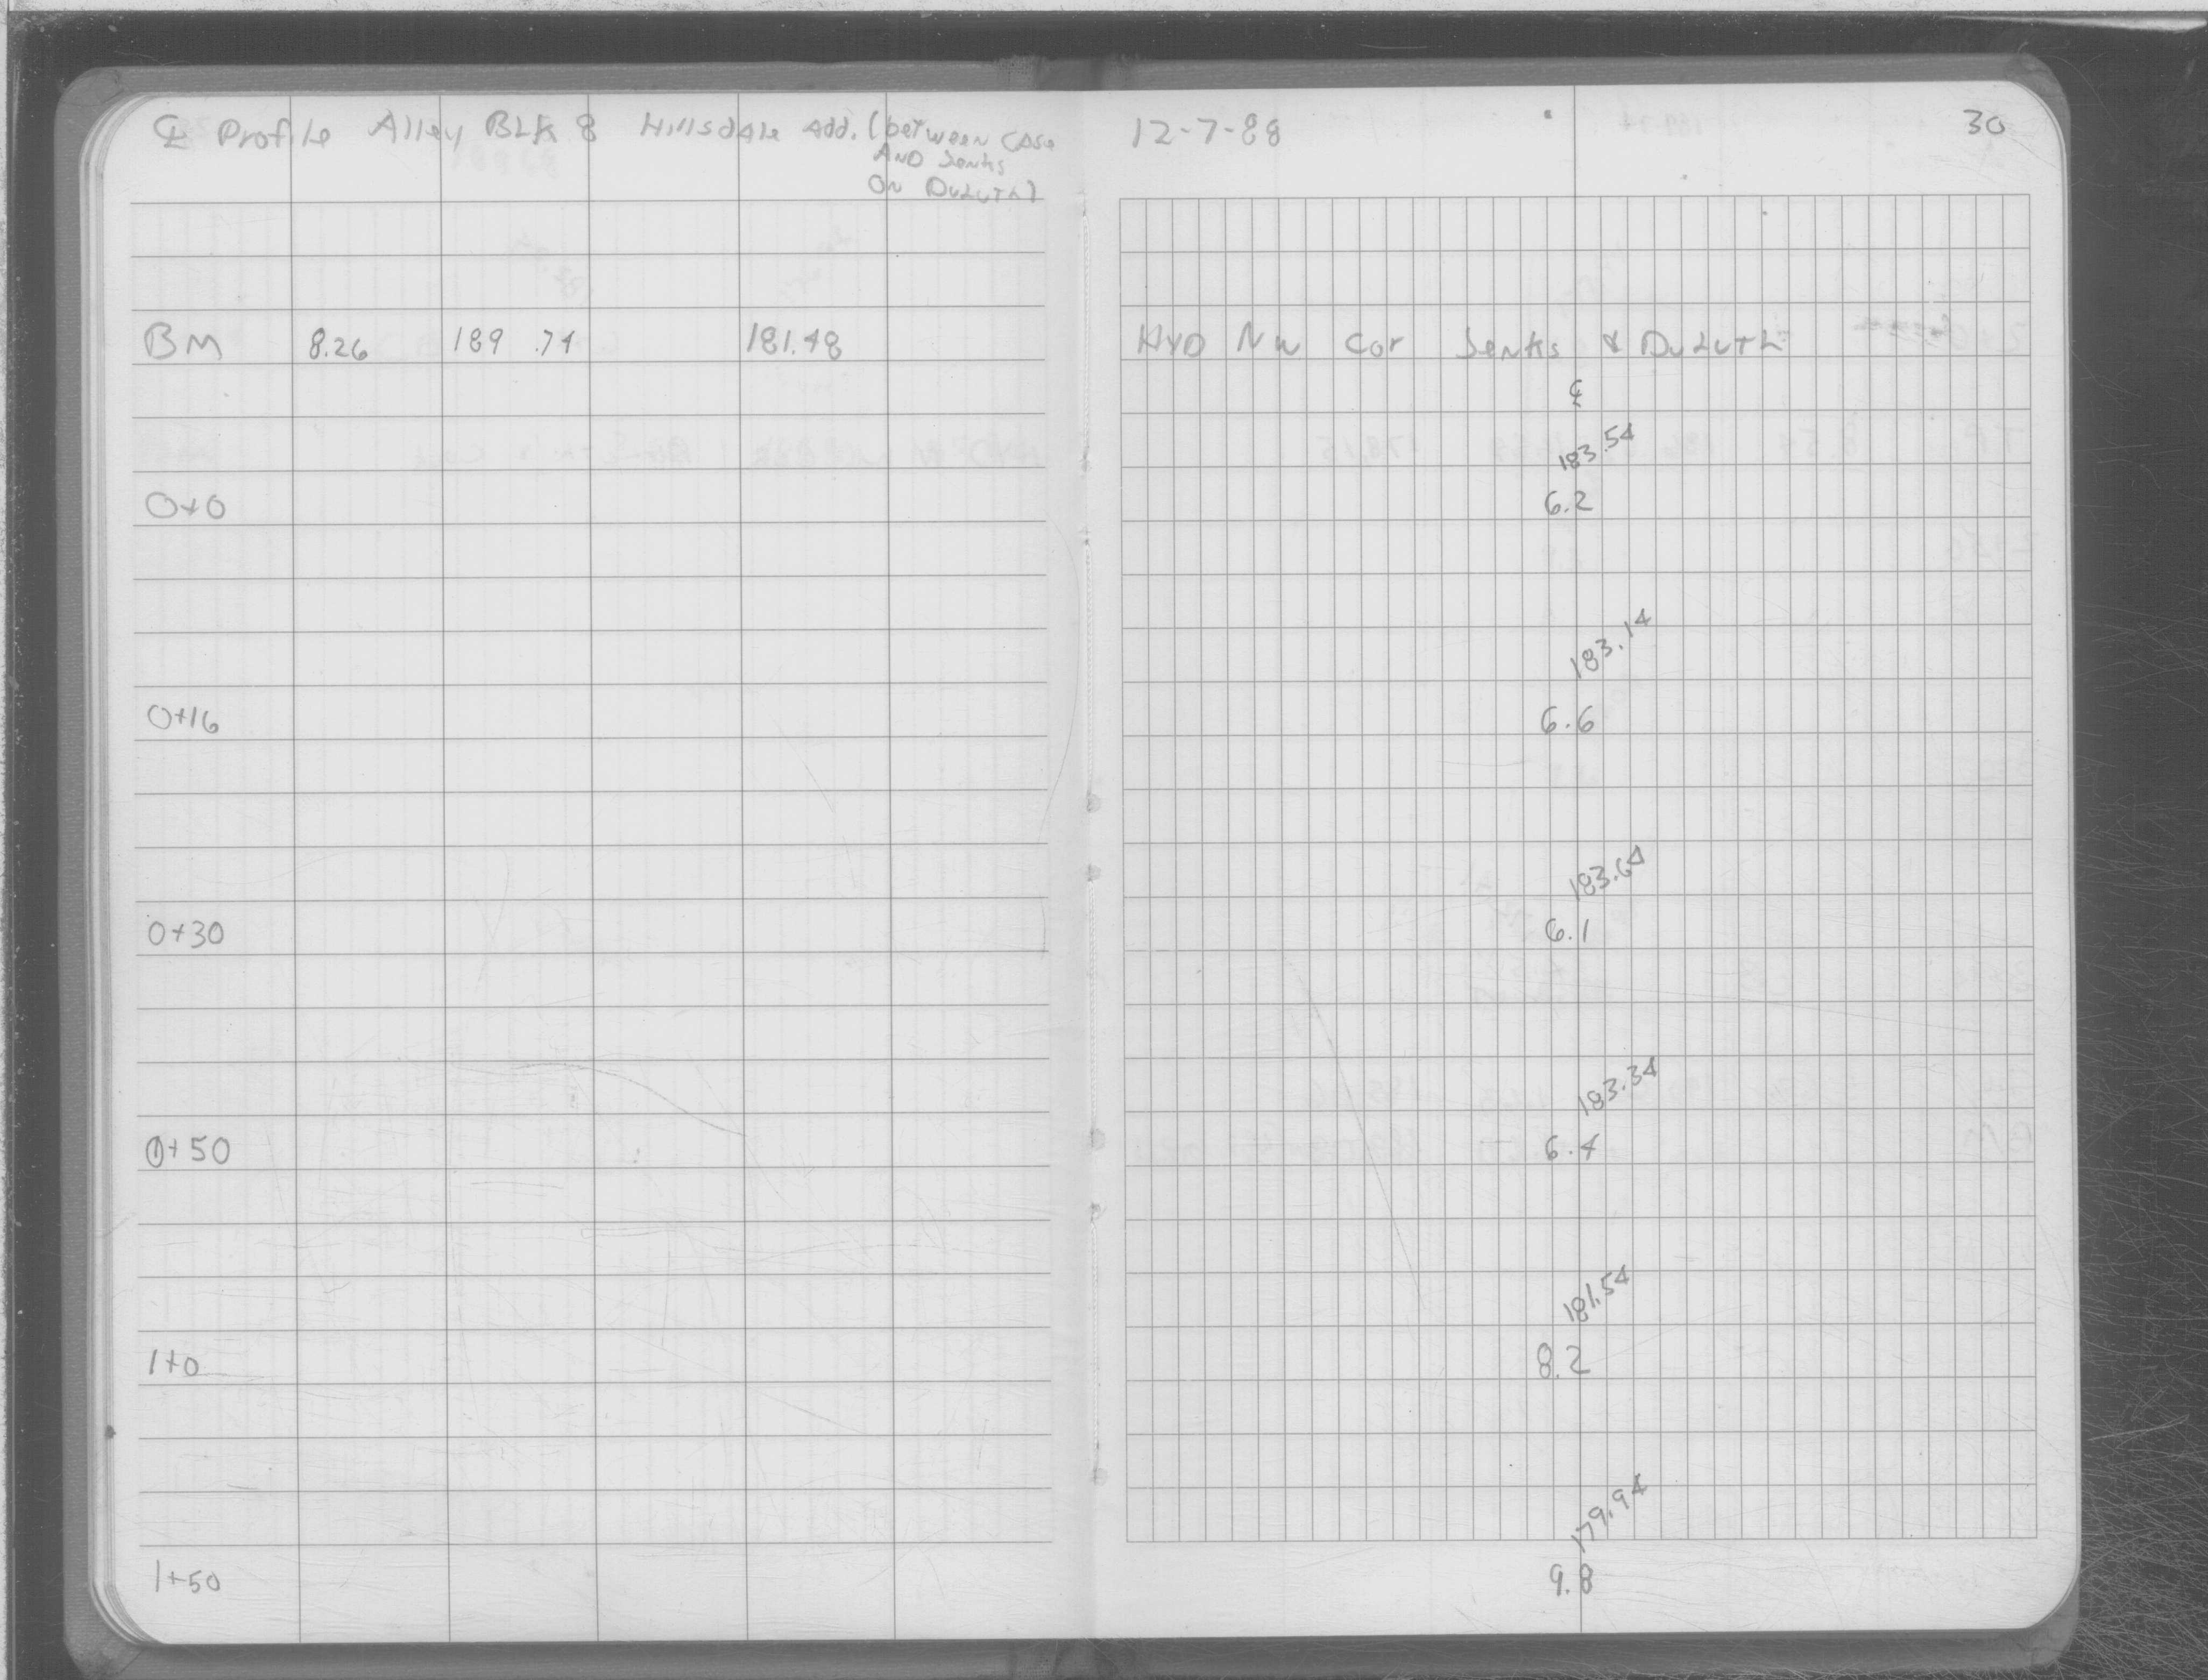 ℄ Profile Alley BLK 8 Hillsdale Add. (between Case
AND Jenks
ON DuLuth)
12-7-88
30
BM 8.26 189.74 181.48 HYD NW Cor Jenks & DuLuth
℄
183.54
0+0 6.2
183.14
0+16 6.6
183.64
0+30 6.1
183.34
0+50 6.4
181.54
1+0 8.2
179.94
1+50 9.8